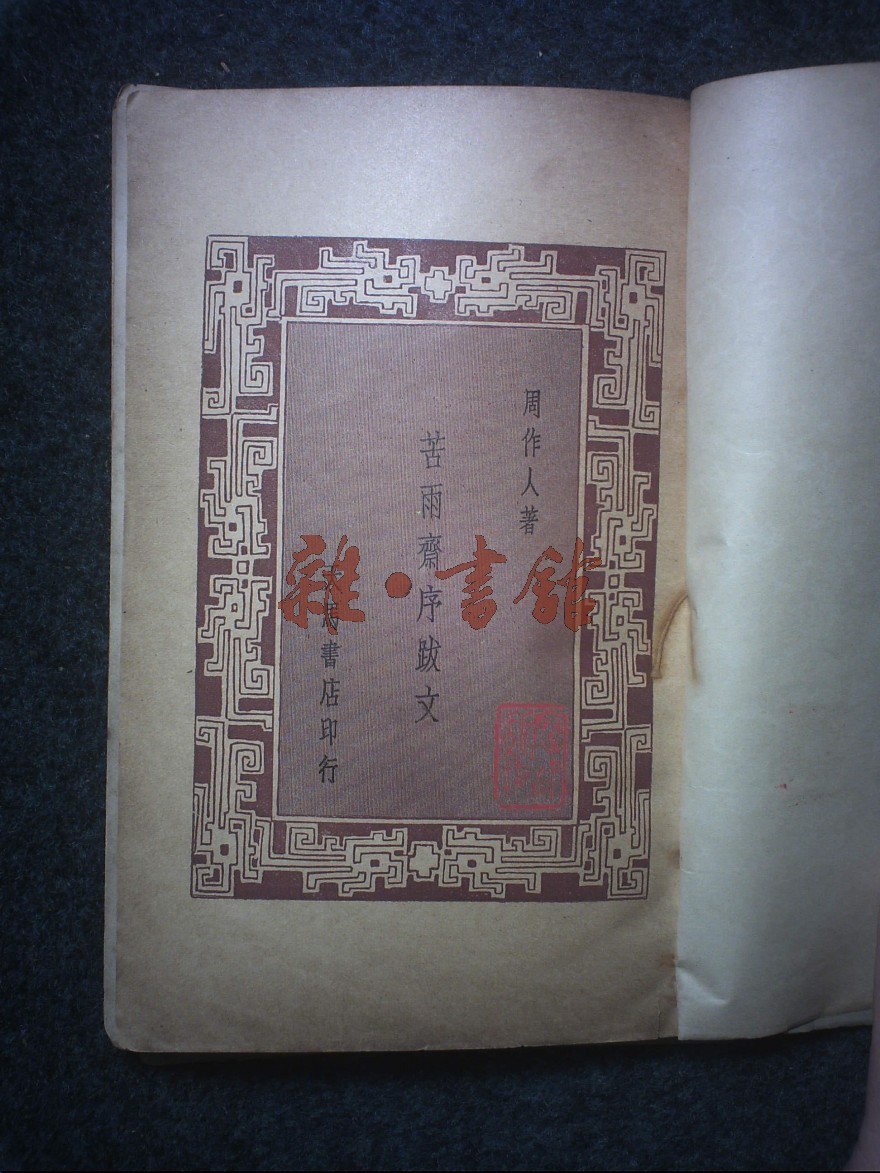 周作人著
苦雨齋序跋文
馬書店印行
雜·書館